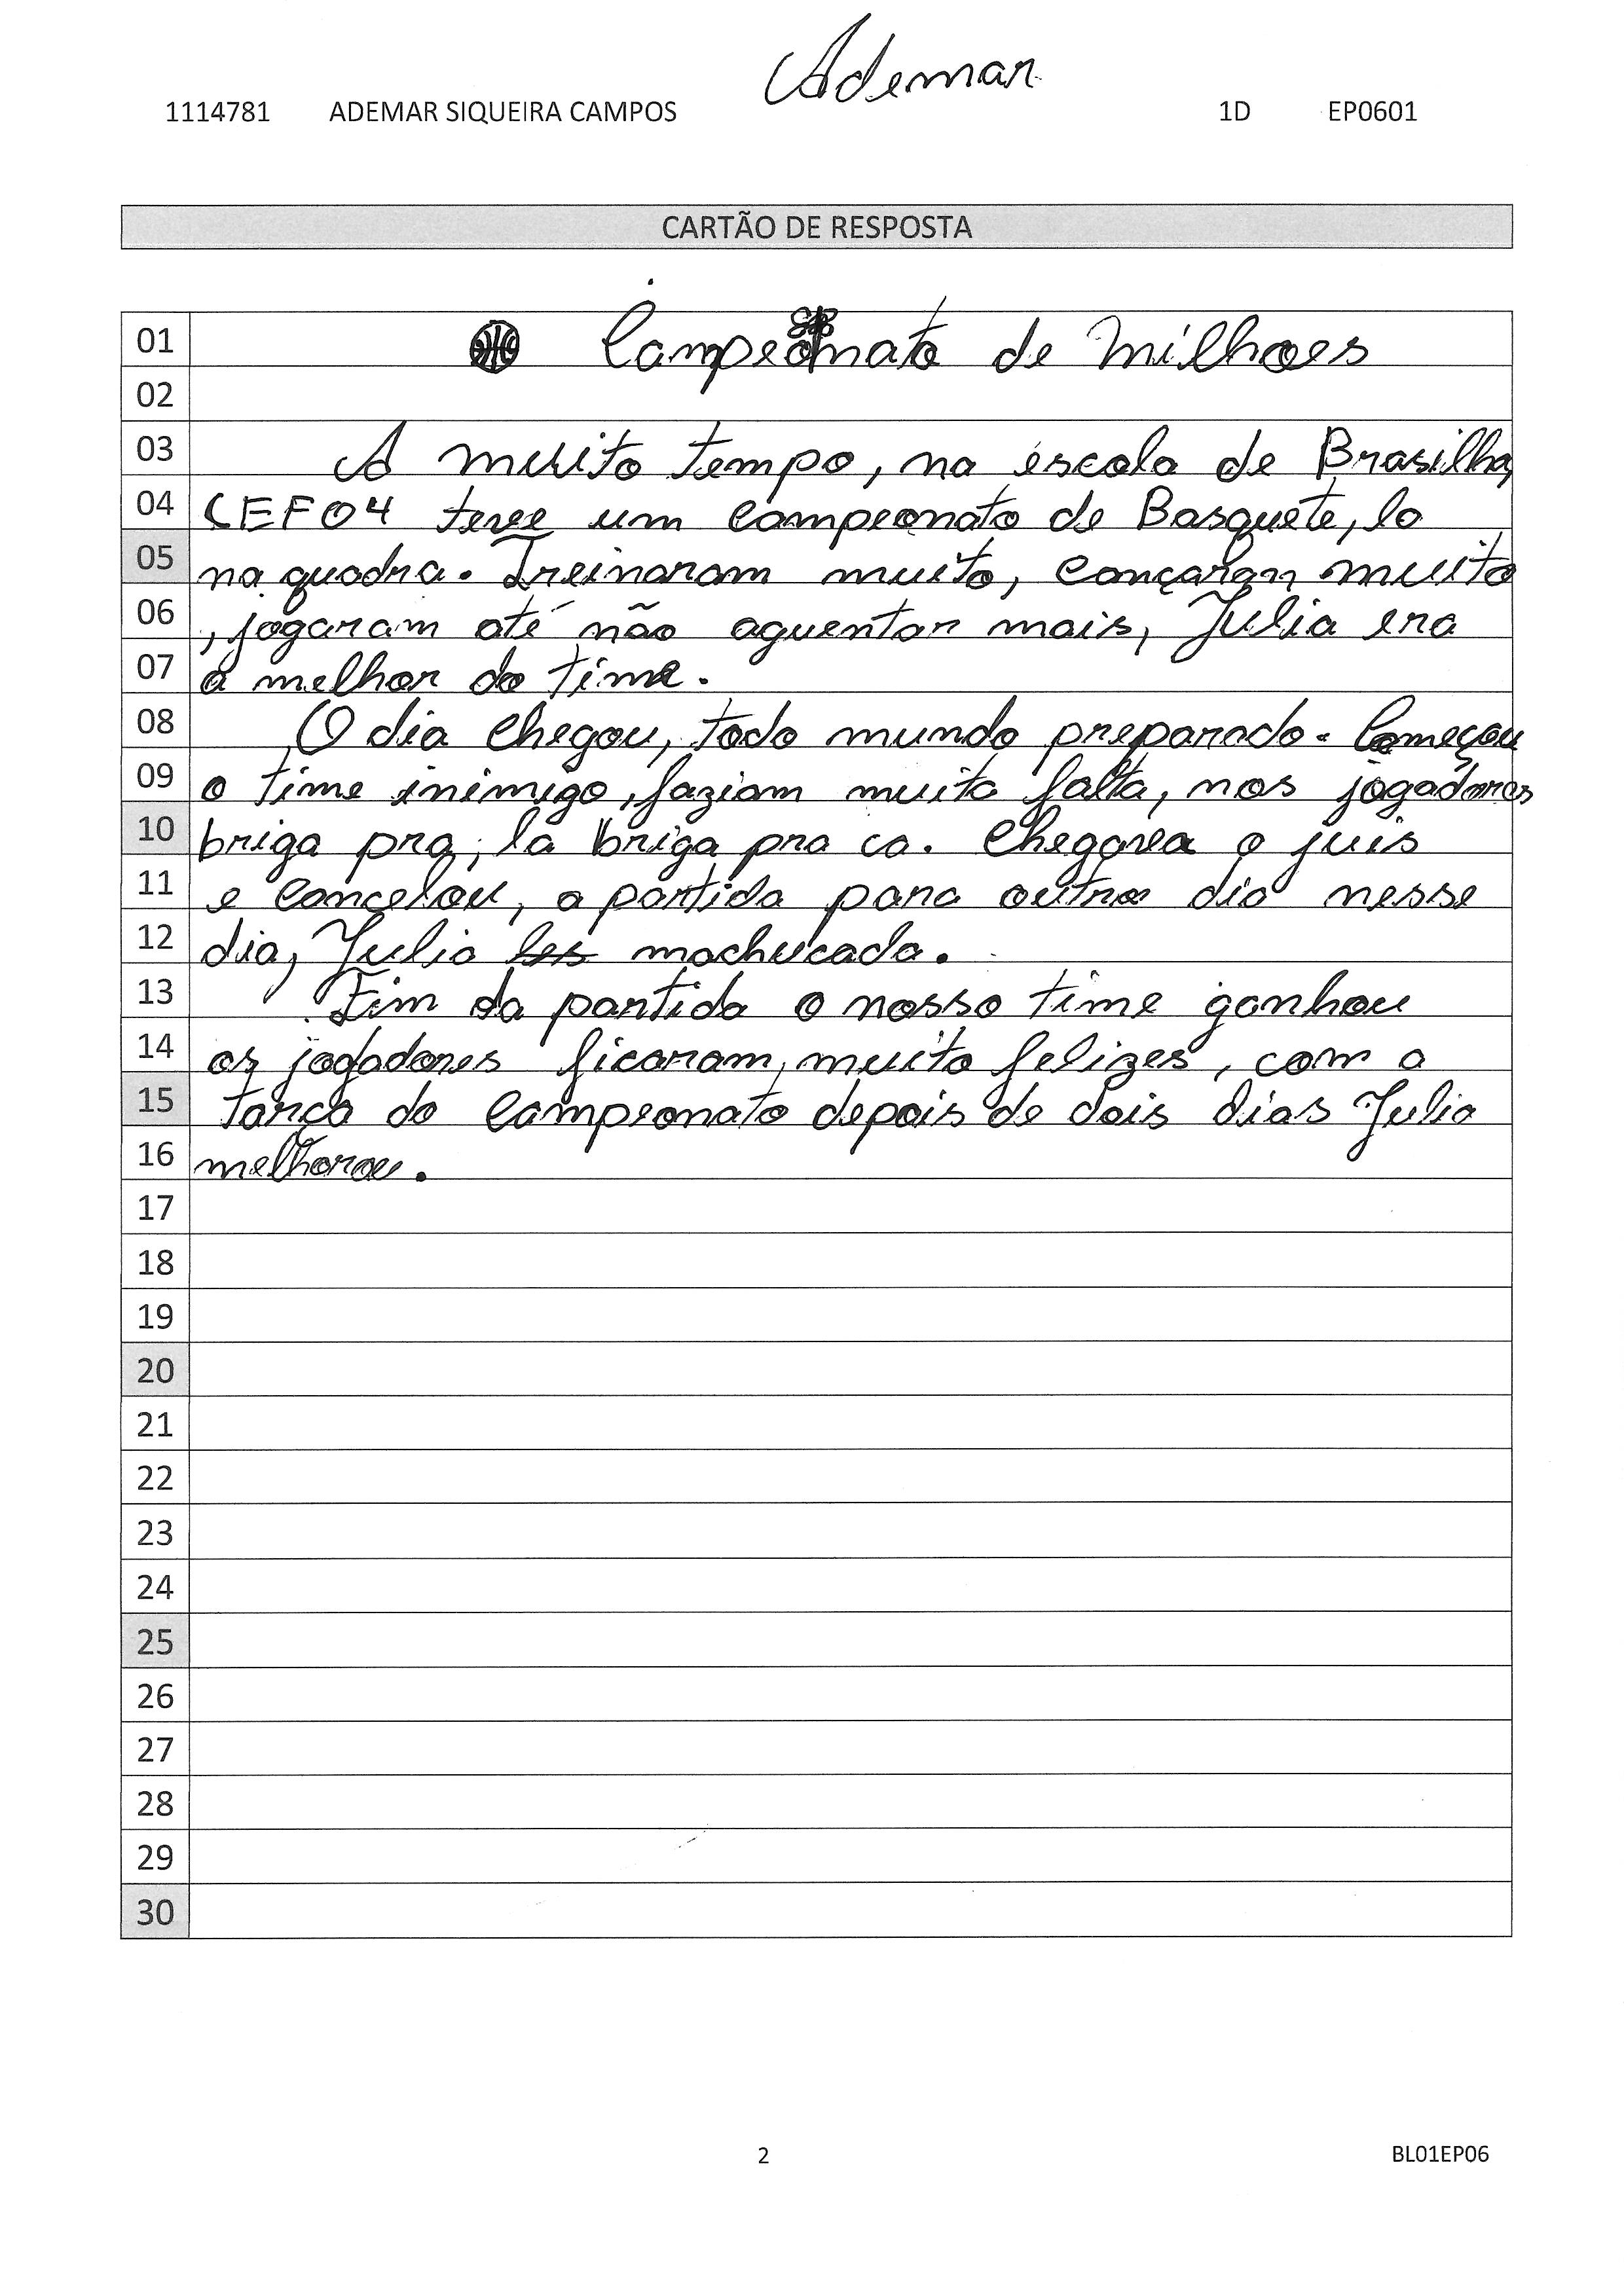 Ademar
1114781 ADEMAR SIQUEIRA CAMPOS 1D EP0601
CARTÃO DE RESPOSTA
01 Campeonato de milhoes
02
03 A muito tempo, na escola de Brasilha,
04 CEF04 teve um campeonato de Basquete, la
05 na quadra. Treinaram muito, cançaram muito
06 , jogaram até não aguentar mais, Julia era
07 a melhor do time.
08 O dia chegou, todo mundo preparado. Começou
09 o time inimigo, faziam muita falta, nos jogadores
10 briga pra, la briga pra ca. Chegava o juis
11 e cancelou, a partida para outro dia nesse
12 dia, Julia machucada.
13 Fim da partida o nosso time ganhou
14 os jogadores ficaram, muito felizes, com a
15 tarça do campeonato depois de dois dias Julia
16 melhorou.
17
18
19
20
21
22
23
24
25
26
27
28
29
30
2 BL01EP06